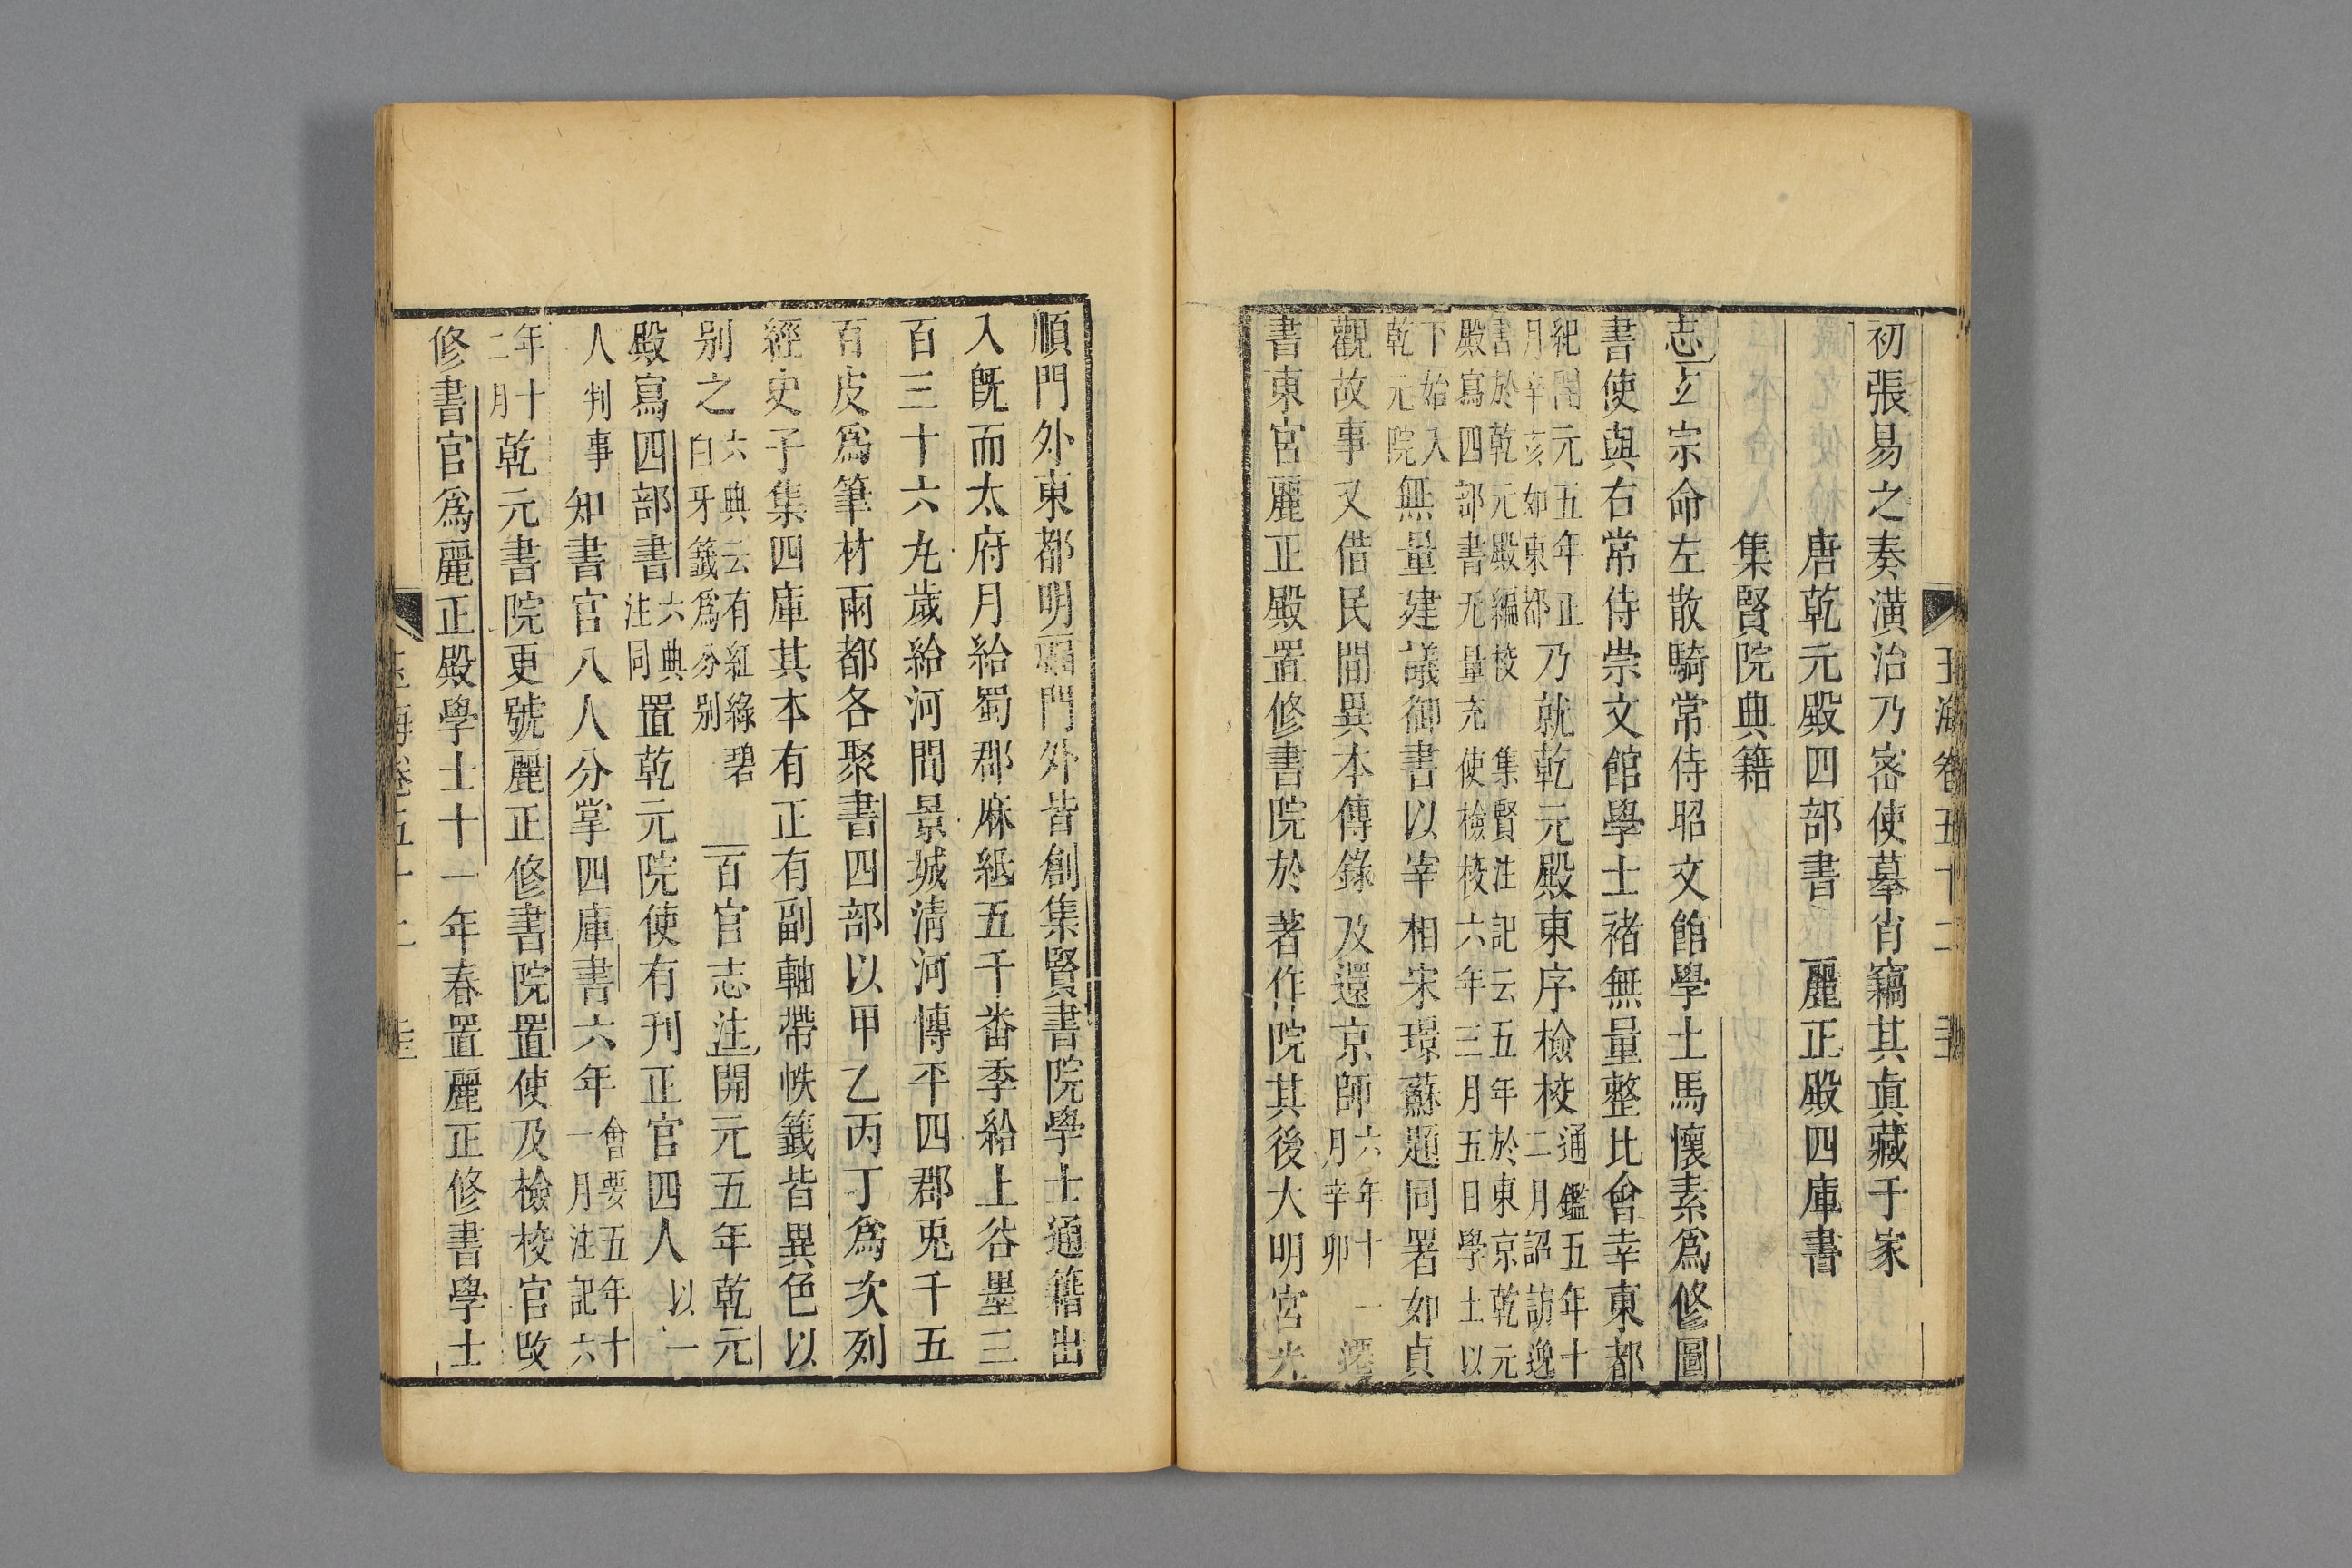 玉海卷五十二
初張易之奏潢治乃密使摹肖竊其眞藏于家
唐乾元殿四部書　麗正殿四庫書
集賢院典籍
志玄宗命左散騎常侍昭文館學士馬懷素爲修圖
書使與右常侍崇文館學士褚無量整比會幸東都
紀開元五年正月辛亥如東都乃就乾元殿東序檢校通鑑五年十二月詔訪逸
書於乾元殿編校　集賢注記云五年於東京乾元殿寫四部書无量充使檢校六年三月五日學士以
下始入乾元院無量建議御書以宰相宋璟蘇題同署如貞
觀故事又借民間異本傳錄及還京師六年十一月辛卯遷
書東宮麗正殿置修書院於著作院其後大明宮光
順門外東都明福門外皆創集賢書院學士通籍出
入旣而太府月給蜀郡麻紙五千番季給上谷墨三
百三十六丸歲給河間景城淸河博平四郡兎千五
百皮爲筆材兩都各聚書四部以甲乙丙丁爲次列
經史子集四庫其本有正有副軸帶帙籤皆異色以
别之六典云有紅綠碧白牙籤爲分别　百官志注開元五年乾元
殿寫四部書六典注同置乾元院使有刋正官四人以一
人判事知書官八人分掌四庫書六年會要五年十一月注記六
年十二月乾元書院更號麗正修書院置使及檢校官改
修書官爲麗正殿學士十一年春置麗正修書學士